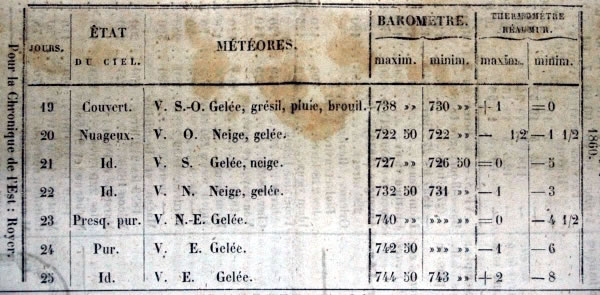 Pour la Chronique de l'Est : Royer.
JOURS. ÉTAT DU CIEL. MÉTÉORES. BAROMÈTRE. THERMOMÈTRE RÉAUMUR.
maxim. minim. maxim. minim.
19 Couvert. V. S.-O. Gelée, grésil, pluie, brouil. 738 »» 730 »» +1 =0
20 Nuageux. V. O. Neige, gelée. 722 50 722 »» — 1/2 —1 1/2
21 Id. V. S. Gelée, neige. 727 »» 726 50 =0 —5
22 Id. V. N. Neige, gelée. 732 50 731 »» —1 —3
23 Presq. pur. V. N.-E. Gelée. 740 »» »»» »» =0 —4 1/2
24 Pur. V. E. Gelée. 742 50 »»» »» —1 —6
25 Id. V. E. Gelée. 744 50 743 »» +2 —8
1860.